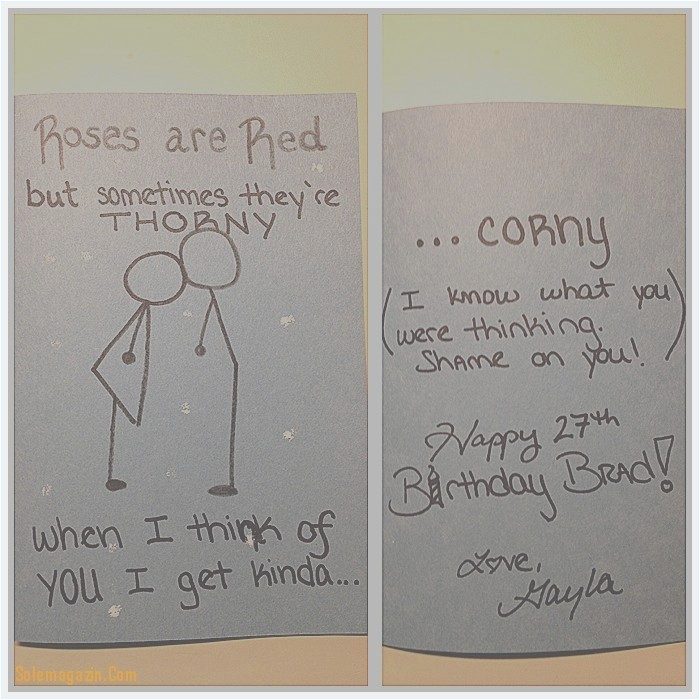 Roses are Red
but sometimes they're
THORNY
when I think of
YOU I get kinda...
... CORNY
(I know what you
were thinking.
Shame on you!)
Happy 27th
Birthday BRAD!
Love,
Gayla
Solomagazin.Com